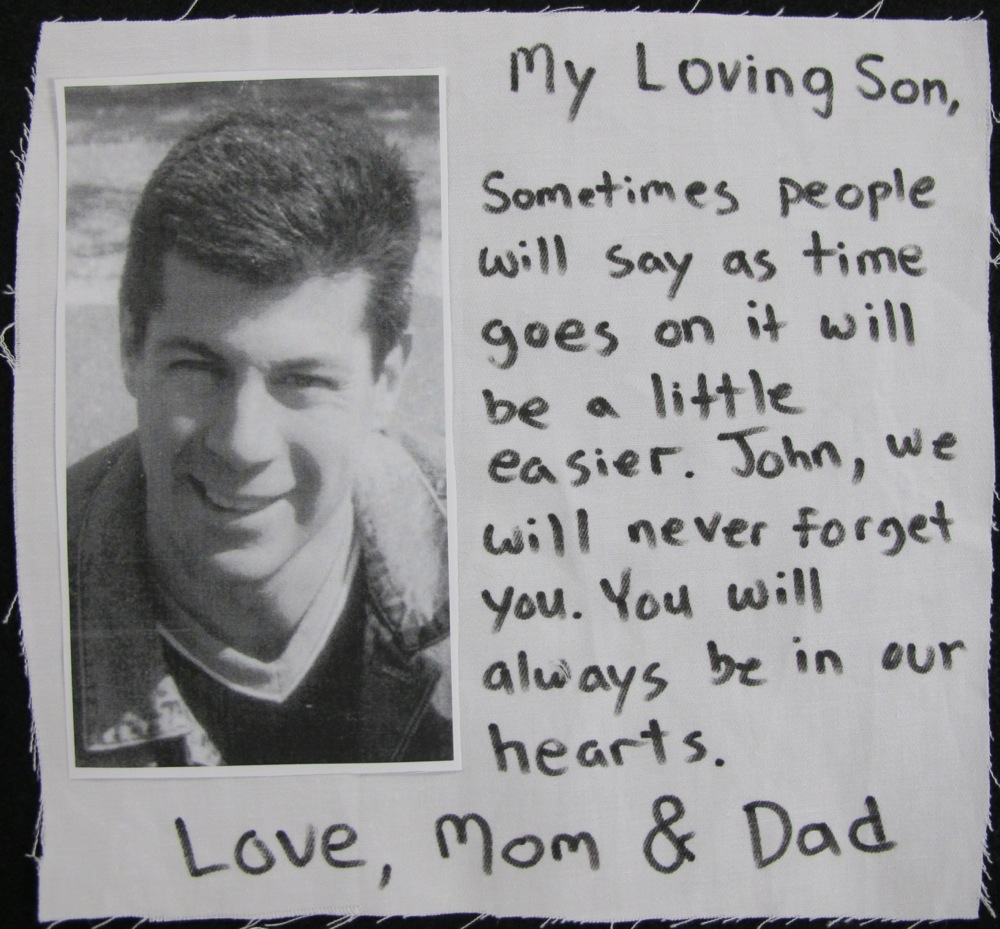 My Loving Son,
Sometimes people
will say as time
goes on it will
be a little
easier. John, we
will never forget
you. You will
always be in our
hearts.
Love, Mom & Dad